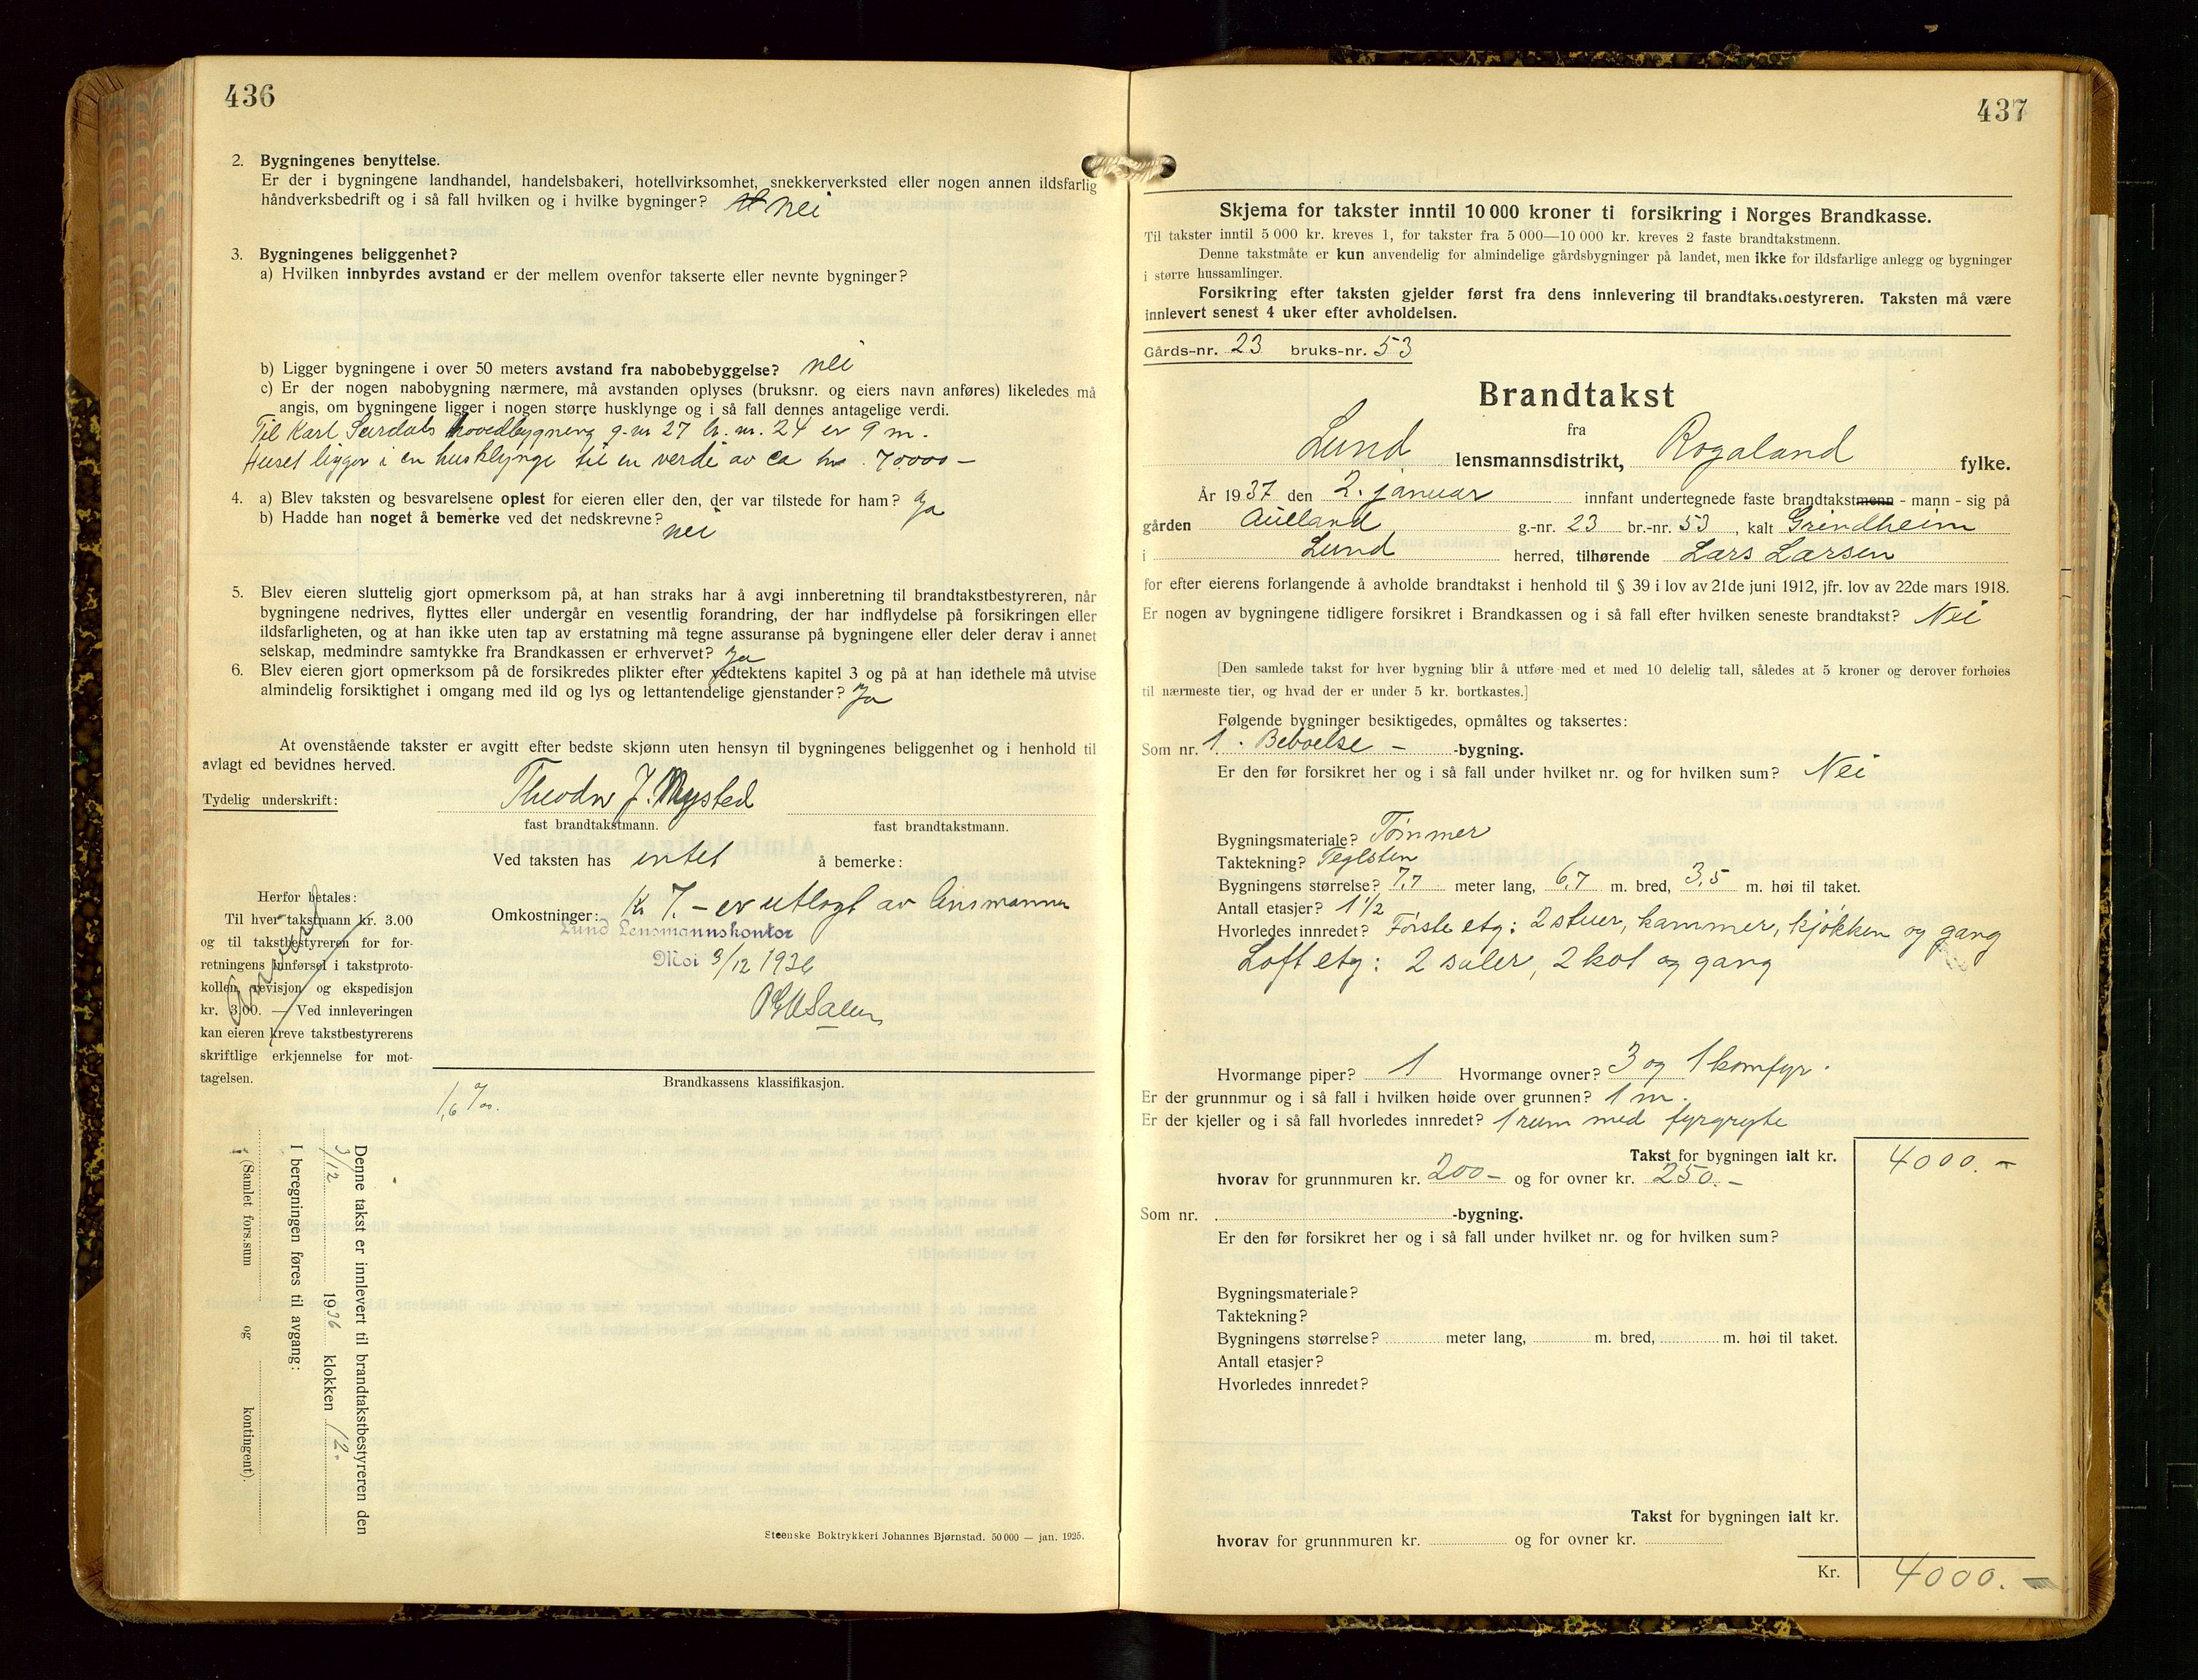 436
2. Bygningenes benyttelse.
Er der i bygningene landhandel, handelsbakeri, hotellvirksomhet, snekkerverksted eller nogen annen ildsfarlig
håndverksbedrift og i så fall hvilken og i hvilke bygninger? nei
3. Bygningenes beliggenhet?
a) Hvilken innbyrdes avstand er der mellem ovenfor takserte eller nevnte bygninger?
b) Ligger bygningene i over 50 meters avstand fra nabobebyggelse? nei
c) Er der nogen nabobygning nærmere, må avstanden oplyses (bruksnr. og eiers navn anføres) likeledes må
angis, om bygningene ligger i nogen større husklynge og i så fall dennes antagelige verdi.
Til Karl Surdals hovedbygning g.nr 27 br.nr. 24 er 9 m.
Huset ligger i en husklynge til en verdi av ca kr. 70000 –
4. a) Blev taksten og besvarelsene oplest for eieren eller den, der var tilstede for ham? Ja
b) Hadde han noget å bemerke ved det nedskrevne? nei
5. Blev eieren sluttelig gjort opmerksom på, at han straks har å avgi innberetning til brandtakstbestyreren, når
bygningene nedrives, flyttes eller undergår en vesentlig forandring, der har indflydelse på forsikringen eller
ildsfarligheten, og at han ikke uten tap av erstatning må tegne assuranse på bygningene eller deler derav i annet
selskap, medmindre samtykke fra Brandkassen er erhvervet? Ja
6. Blev eieren gjort opmerksom på de forsikredes plikter efter vedtektens kapitel 3 og på at han idethele må utvise
almindelig forsiktighet i omgang med ild og lys og lettantendelige gjenstander? Ja
At ovenstående takster er avgitt efter bedste skjønn uten hensyn til bygningenes beliggenhet og i henhold til
avlagt ed bevidnes herved.
Tydelig underskrift: Theodor J. Mysted
fast brandtakstmann. fast brandtakstmann.
Ved taksten has intet å bemerke:
Omkostninger: Kr 7. – er utlagt av lensmannen
Lund Lensmannskontor
Moi 3/12 1936
Herfor betales:
Til hver takstmann kr. 3.00
og til takstbestyreren for for-
retningens innførsel i takstproto-
kollen, revisjon og ekspedisjon
kr. 3.00. — Ved innleveringen
kan eieren kreve takstbestyrerens
skriftlige erkjennelse for mot-
tagelsen.
Brandkassens klassifikasjon.
1,6 ‰.
Denne takst er innlevert til brandtakstbestyreren den
3/12 1936 klokken 12.
I beregningen føres til avgang:
(Samlet fors.sum og kontingent).
Steenske Boktrykkeri Johannes Bjørnstad. 50 000 — jan. 1925.
437
Skjema for takster inntil 10 000 kroner ti forsikring i Norges Brandkasse.
Til takster inntil 5 000 kr. kreves 1, for takster fra 5 000—10 000 kr. kreves 2 faste brandtakstmenn.
Denne takstmåte er kun anvendelig for almindelige gårdsbygninger på landet, men ikke for ildsfarlige anlegg og bygninger
i større hussamlinger.
Forsikring efter taksten gjelder først fra dens innlevering til brandtakstbestyreren. Taksten må være
innlevert senest 4 uker efter avholdelsen.
Gårds-nr. 23 bruks-nr. 53
Brandtakst
fra
Lund lensmannsdistrikt, Rogaland fylke.
År 1937 den 2. januar innfant undertegnede faste brandtakstmenn - mann - sig på
gården Aueland g.-nr. 23 br.-nr. 53, kalt Grindheim
i Lund herred, tilhørende Lars Larsen
for efter eierens forlangende å avholde brandtakst i henhold til § 39 i lov av 21de juni 1912, jfr. lov av 22de mars 1918.
Er nogen av bygningene tidligere forsikret i Brandkassen og i så fall efter hvilken seneste brandtakst? Nei
[Den samlede takst for hver bygning blir å utføre med et med 10 delelig tall, således at 5 kroner og derover forhøies
til nærmeste tier, og hvad der er under 5 kr. bortkastes.]
Følgende bygninger besiktigedes, opmåltes og taksertes:
Som nr. 1. Beboelse – -bygning.
Er den før forsikret her og i så fall under hvilket nr. og for hvilken sum? Nei
Bygningsmateriale? Tømmer
Taktekning? Teglsten
Bygningens størrelse? 7,7 meter lang, 6,7 m. bred, 3,5 m. høi til taket.
Antall etasjer? 1 1/2
Hvorledes innredet? Første etg: 2 stuer, kammer, kjøkken og gang
Loft etg: 2 saler, 2 kot og gang
Hvormange piper? 1 Hvormange ovner? 3 og 1 komfyr.
Er der grunnmur og i så fall i hvilken høide over grunnen? 1 m.
Er der kjeller og i så fall hvorledes innredet? 1 rum med fyrgryte
Takst for bygningen ialt kr. 4000. –
hvorav for grunnmuren kr. 200 – og for ovner kr. 250. –
Som nr. -bygning.
Er den før forsikret her og i så fall under hvilket nr. og for hvilken sum?
Bygningsmateriale?
Taktekning?
Bygningens størrelse? meter lang, m. bred, m. høi til taket.
Antall etasjer?
Hvorledes innredet?
Takst for bygningen ialt kr.
hvorav for grunnmuren kr. og for ovner kr.
Kr. 4000. –